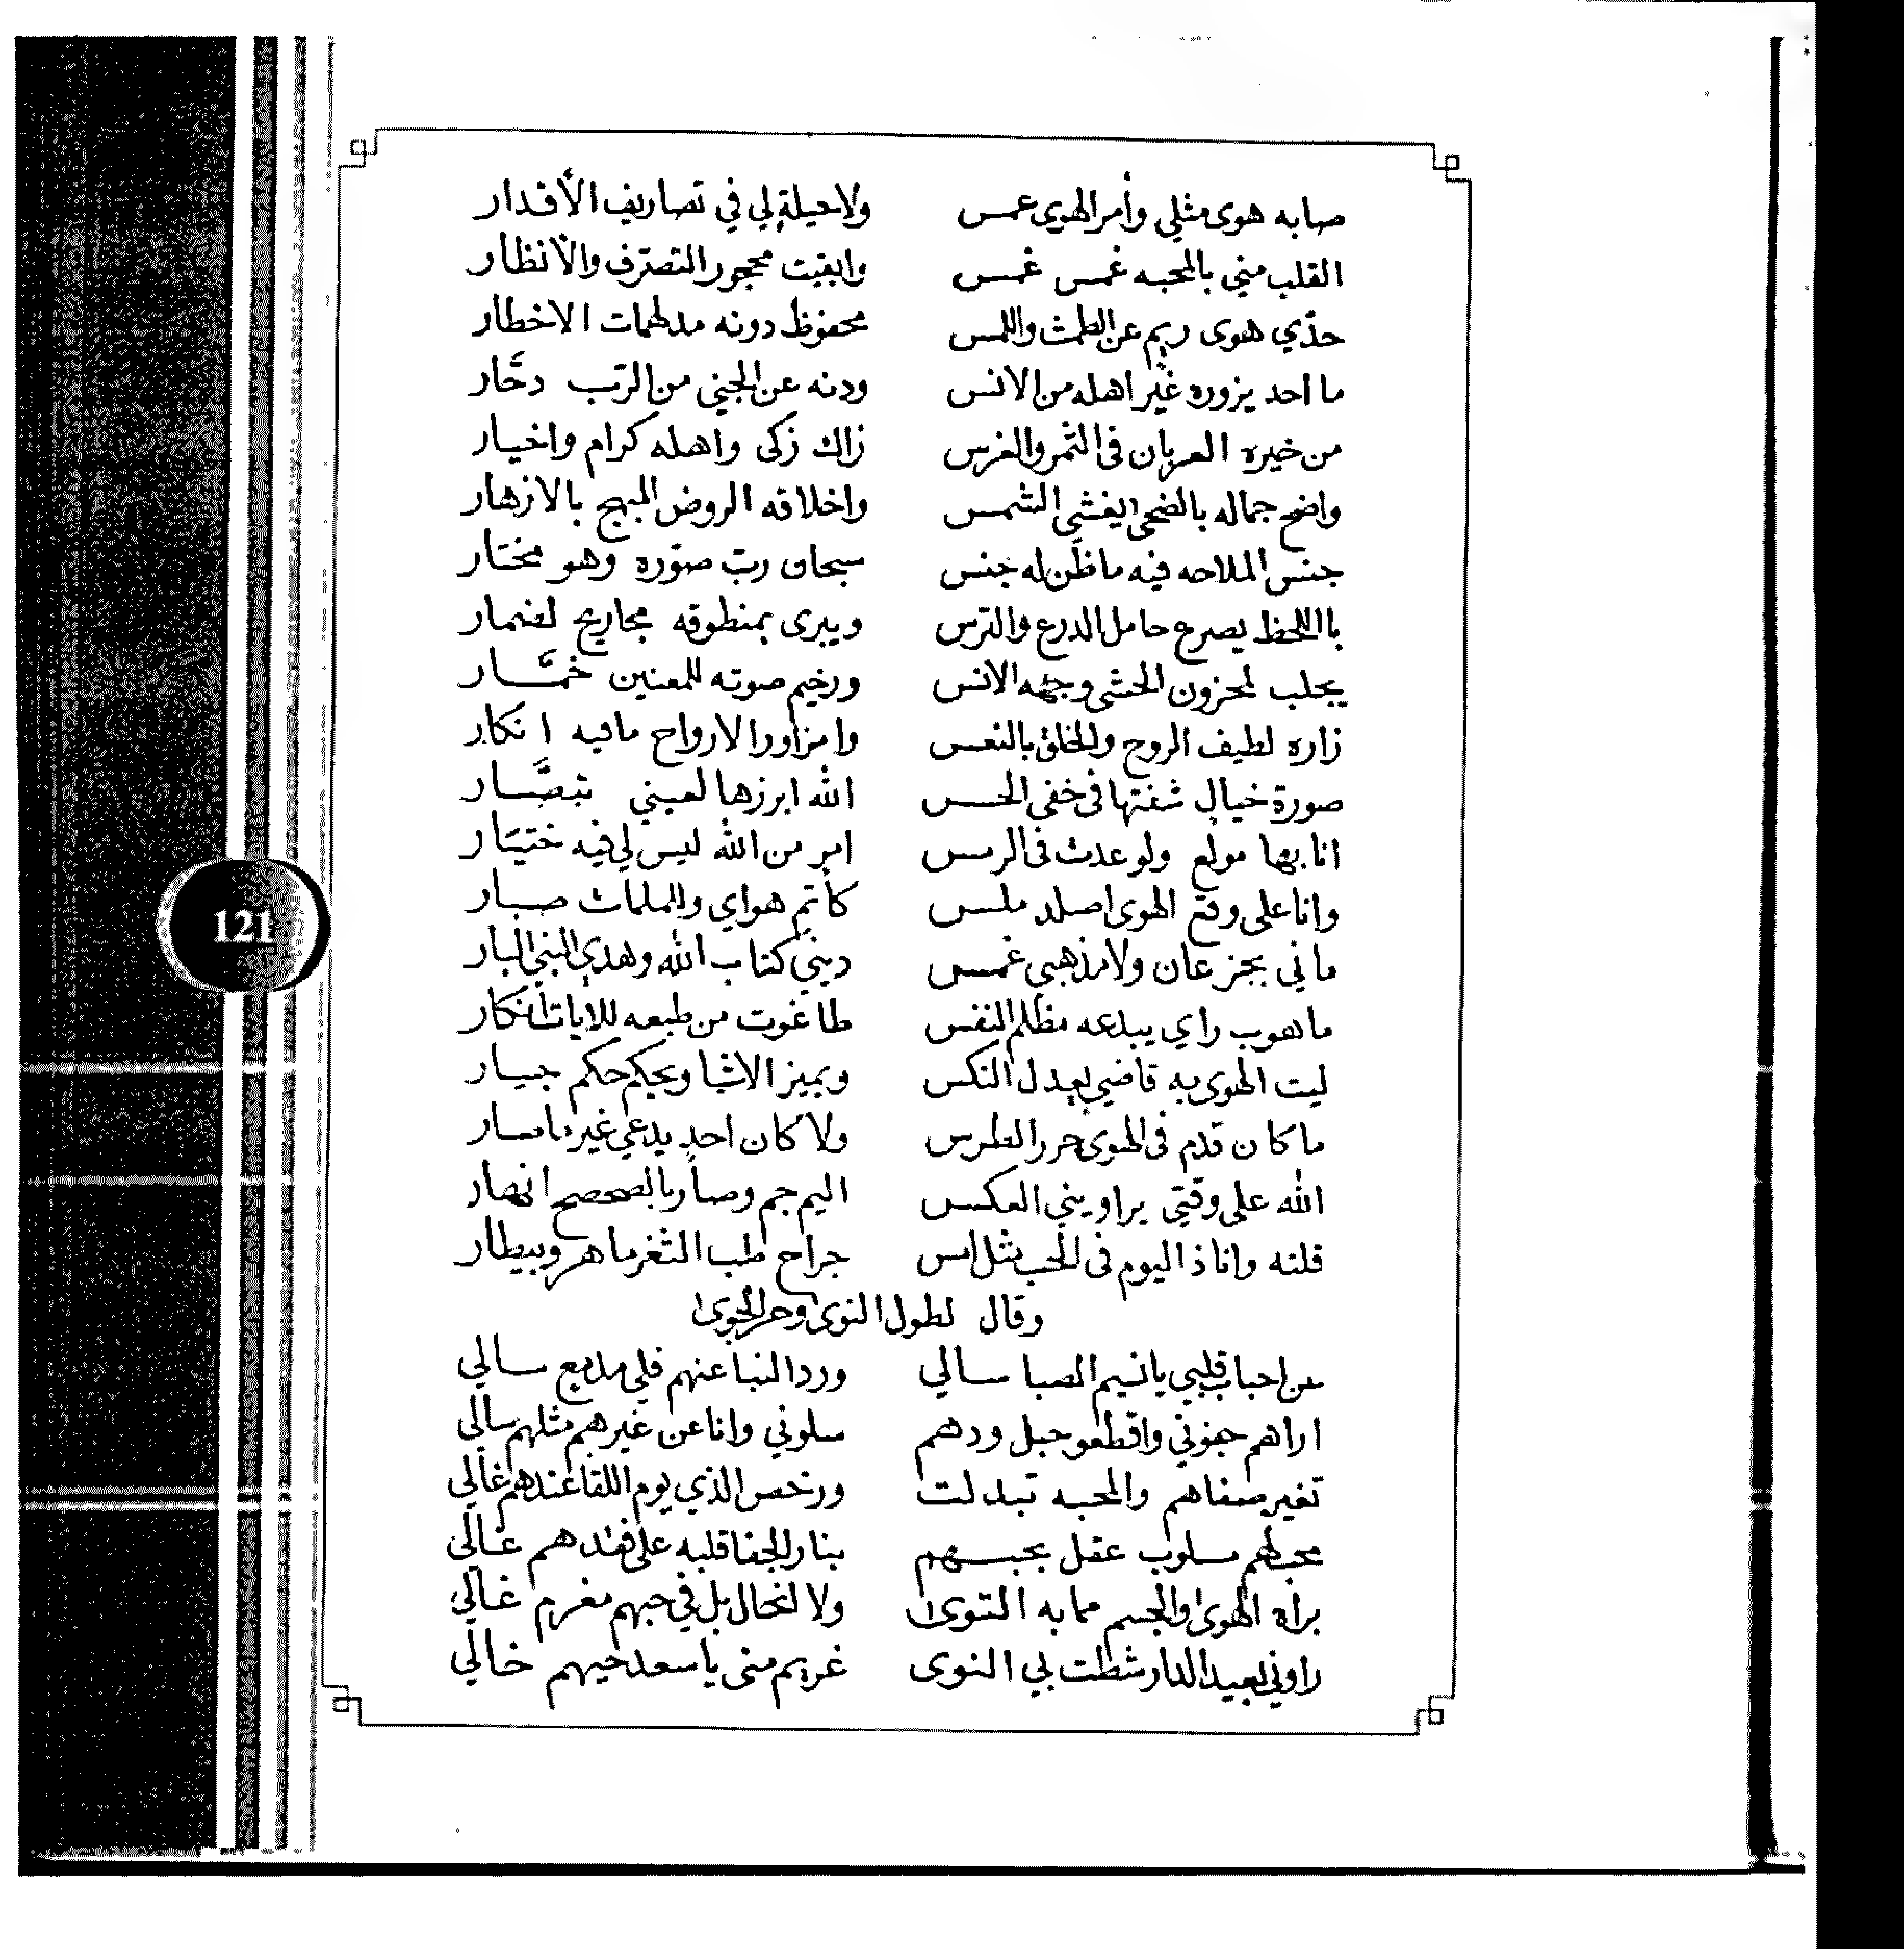 صابه هوى مثلي وأمر الهوى عمس ولا حيلة لي في تصاريف الأقدار
القلب مني بالمحبه غمس غمس وابقيت محجور التصرف والأنظار
حذي هوى ريم عن الطمث واللمس محفوظ دونه مدلهمات الاخطار
ما احد يزوره غير اهله من الانس ودنه عن الجني من الرتب دحَّار
من خيره العربان في الثمر والغرس زاك زكى واهله كرام واخيار
واضح جماله بالضحى يغشي الشمس واخلاقه الروض المبهج بالازهار
جنس الملاحه فيه ما ظن له جنس سبحان رب صوره وهو مختار
باللحظ يصرع حامل الدرع والترس ويبرى بمنطوقه مجاريح لضمار
يجلب لمحزون الحشى وجهه الانس ورخيم صوته للمعنين خمَّار
زاره لطيف الروح والخلق بالنعس وامزاور الارواح مافيه انكار
صورة خيال شفتها في خفى الحس الله ابرزها لعيني تبصَّار
انا بها مولع ولو عدت في الرمس امر من الله ليس لي فيه ختيَار
وانا على وقع الهوى اصلد ملس كاتم هواي والملمات صبار
ماني بجزعان ولا مذهبي غمس ديني كتاب الله وهدي النبي البار
ما هوب راي يبدعه مظلم النفس طاغوت من طبعه للايات انكار
ليت الهوى به قاضي يعدل النكس ويميز الاشيا ويحكم حكم جبار
ما كان قدم في الهوى حرر الطرس ولا كان احد يدعي غير ما سار
الله على وقتي يراويني العكس اليم جم وصار بالصحصح انهار
قلته وانا ذا اليوم في الحب مثل امس جراح طب الثغر ماهر وبيطار
وقال لطول النوى وحر الجوى
عن احباب قلبي يا نسيم الصبا سالي ورد النبا عنهم فلي مدمع سالي
اراهم جفوني واقطعو حبل ودهم سلوني وانا عن غيرهم مثلهم سالي
تغير صفاهم والمحبه تبدلت ورخص الذي يوم اللقا عندهم غالي
محبلهم مسلوب عقل بحبهم بنار الجفا قلبه على فقدهم غالي
براه الهوى والجسم مما به التوى ولا لنحال بل في حبهم مغرم غالي
راوني بعيد الدار شطت بي النوى غريم منى يا سعد حيهم خالي
121